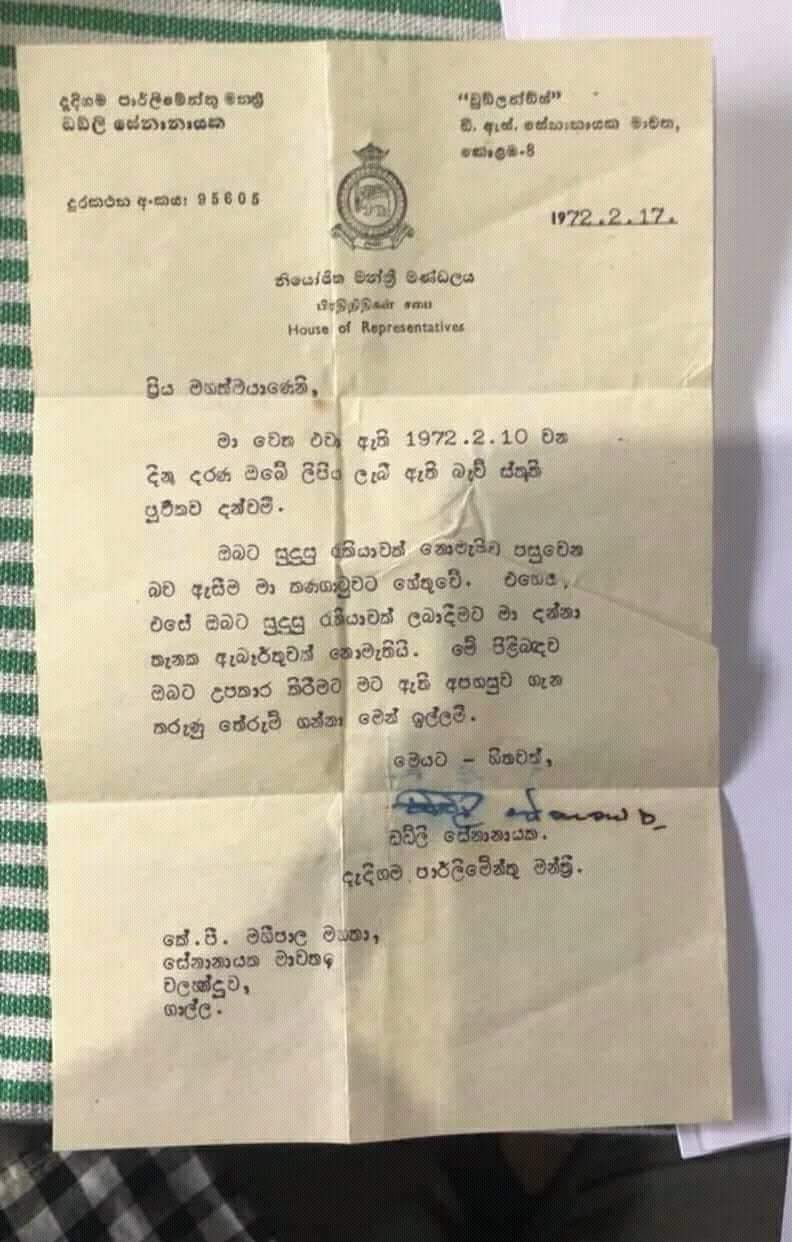 දැදිගම පාර්ලිමේන්තු මන්ත්‍රී
ඩඩ්ලි සේනානායක
"වුඩ්ලන්ඩ්ස්"
ඩී. ඇස්. සේනානායක මාවත,
කොළඹ-8
දුරකථන අංකය: 95605
1972.2.17.
නියෝජිත මන්ත්‍රී මණ්ඩලය
பிரதிநிதிகள் சபை
House of Representatives
ප්‍රිය මහත්මයාණෙනි,
මා වෙත එවා ඇති 1972.2.10 වන
දින දරණ ඔබේ ලිපිය ලැබී ඇති බැව් ස්තුති
පූර්වකව දන්වමි.
ඔබට සුදුසු රැකියාවක් නොමැතිව පසුවෙන
බව ඇසීම මා කණගාටුවට හේතුවේ. එහෙත්,
එසේ ඔබට සුදුසු රැකියාවක් ලබාදීමට මා දන්නා
තැනක ඇබෑර්තුවක් නොමැතියි. මේ පිළිබඳව
ඔබට උපකාර කිරීමට මට ඇති අපහසුව ගැන
කරුණු තේරුම් ගන්නා මෙන් ඉල්ලමි.
මෙයට - හිතවත්,
ඩඩ්ලි සේනානායක
ඩඩ්ලි සේනානායක.
දැදිගම පාර්ලිමේන්තු මන්ත්‍රී.
කේ.පී. මහීපාල මහතා,
සේනානායක මාවත,
වලහන්දූව,
ගාල්ල.